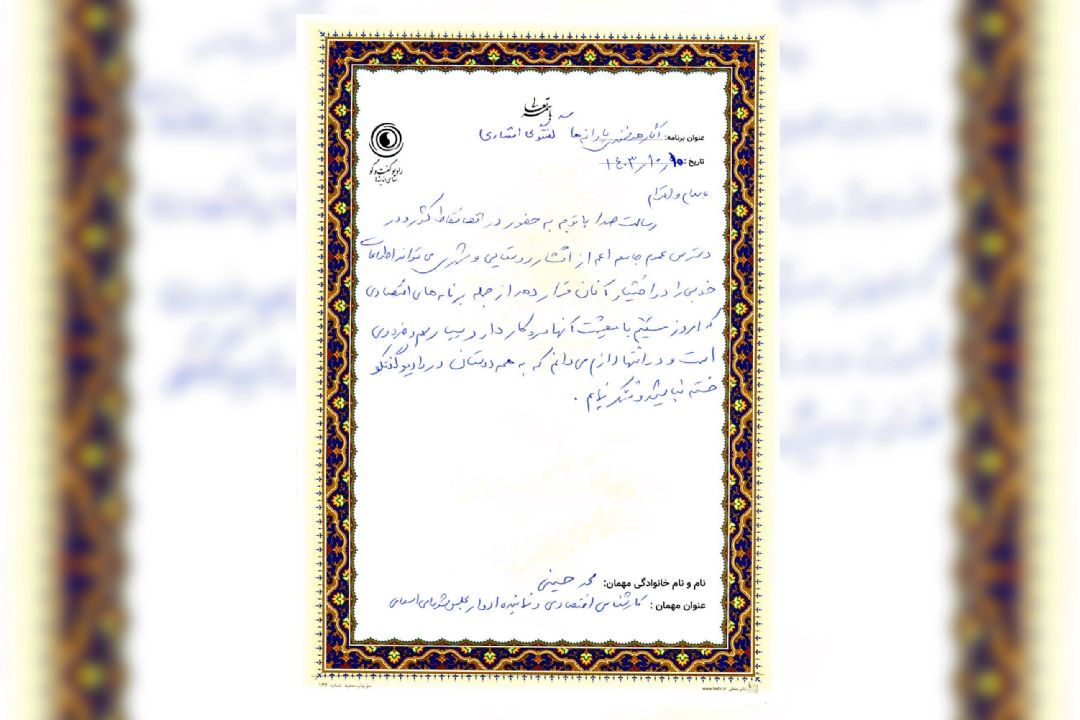 باسمه تعالی
رادیو گفت و گو
عنوان برنامه: آثار هدفمندی یارانه‌ها گفتگوی اقتصادی
تاریخ: ۱۴۰۳/۱۰/۱۰
با سلام و احترام
رسالت صدا با توجه به حضور در اقصا نقاط کشور و در
دسترس عموم جامعه اعم از اقشار روستایی و شهری می تواند اطلاعات
خوبی را در اختیار آنان قرار دهد از جمله برنامه های اقتصادی
که امروز مستقیم با معیشت آنها سر و کار دارد و
است و در انتها لازم می دانم که به همه دوستان در رادیو گفتگو
خسته نباشید و تشکر نمایم .
نام و نام خانوادگی مهمان: محمد حسینی
عنوان مهمان : کارشناس اقتصادی و نماینده ادوار مجلس شورای اسلامی